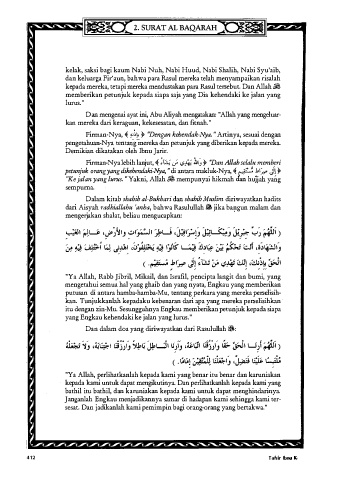 2. SURAT AL BAQARAH
kelak, saksi bagi kaum Nabi Nuh, Nabi Huud, Nabi Shalih, Nabi Syu'aib,
dan keluarga Fir'aun, bahwa para Rasul mereka telah menyampaikan risalah
kepada mereka, tetapi mereka mendustakan para Rasul tersebut. Dan Allah ﷻ
memberikan petunjuk kepada siapa saja yang Dia kehendaki ke jalan yang
lurus."
Dan mengenai ayat ini, Abu Aliyah mengatakan "Allah yang mengeluar-
kan mereka dari keraguan, kekesesatan, dan fitnah."
Firman-Nya, ﴿ بِإِذْنِهِ ﴾ "Dengan kehendak-Nya." Artinya, sesuai dengan
pengetahuan-Nya tentang mereka dan petunjuk yang diberikan kepada mereka.
Demikian dikatakan oleh Ibnu Jarir.
Firman-Nya lebih lanjut, ﴿ وَاللهُ يَهْدِي مَن يَشَاءُ ﴾ "Dan Allah selalu memberi
petunjuk orang yang dikehendaki-Nya," di antara makhluk-Nya, ﴿ إِلَى صِرَاطٍ مُّسْتَقِيمٍ ﴾
"Ke jalan yang lurus." Yakni, Allah ﷻ mempunyai hikmah dan hujjah yang
sempurna.
Dalam kitab shahih al-Bukhari dan shahih Muslim diriwayatkan hadits
dari Aisyah radhiallahu 'anha, bahwa Rasulullah ﷺ jika bangun malam dan
mengerjakan shalat, beliau mengucapkan:
( اَللَّهُمَّ رَبَّ جِبْرِيْلَ وَمِيْكَائِيْلَ وَإِسْرَافِيْلَ، فَاطِرَ السَّمَوَاتِ وَالأَرْضِ، عَالِمَ الْغَيْبِ
وَالشَّهَادَةِ، أَنْتَ تَحْكُمُ بَيْنَ عِبَادِكَ فِيْمَا كَانُوْا فِيْهِ يَخْتَلِفُوْنَ، اِهْدِنِي لِمَا اخْتُلِفَ فِيْهِ مِنَ
الْحَقِّ بِإِذْنِكَ، إِنَّكَ تَهْدِي مَنْ تَشَاءُ إِلَى صِرَاطٍ مُسْتَقِيْمٍ. )
"Ya Allah, Rabb Jibril, Mikail, dan Israfil, pencipta langit dan bumi, yang
mengetahui semua hal yang ghaib dan yang nyata, Engkau yang memberikan
putusan di antara hamba-hamba-Mu, tentang perkara yang mereka perselisih-
kan. Tunjukkanlah kepadaku kebenaran dari apa yang mereka perselisihkan
itu dengan izin-Mu. Sesungguhnya Engkau memberikan petunjuk kepada siapa
yang Engkau kehendaki ke jalan yang lurus."
Dan dalam doa yang diriwayatkan dari Rasulullah ﷺ:
( اَللَّهُمَّ أَرِنَا الْحَقَّ حَقًّا وَارْزُقْنَا اتِّبَاعَهُ، وَأَرِنَا الْبَاطِلَ بَاطِلاً وَارْزُقْنَا اجْتِنَابَهُ، وَلاَ تَجْعَلْهُ
مُلْتَبِسًا عَلَيْنَا فَنَضِلَّ، وَاجْعَلْنَا لِلْمُتَّقِيْنَ إِمَامًا. )
"Ya Allah, perlihatkanlah kepada kami yang benar itu benar dan karuniakan
kepada kami untuk dapat mengikutinya. Dan perlihatkanlah kepada kami yang
bathil itu bathil, dan karuniakan kepada kami untuk dapat menghindarinya.
Janganlah Engkau menjadikannya samar di hadapan kami sehingga kami ter-
sesat. Dan jadikanlah kami pemimpin bagi orang-orang yang bertakwa."
412
Tafsir Ibnu K